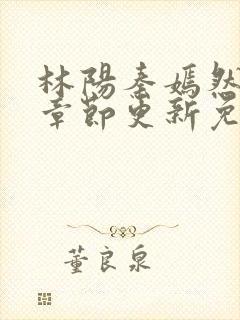 林陽秦嫣然
章節更新免
董良泉